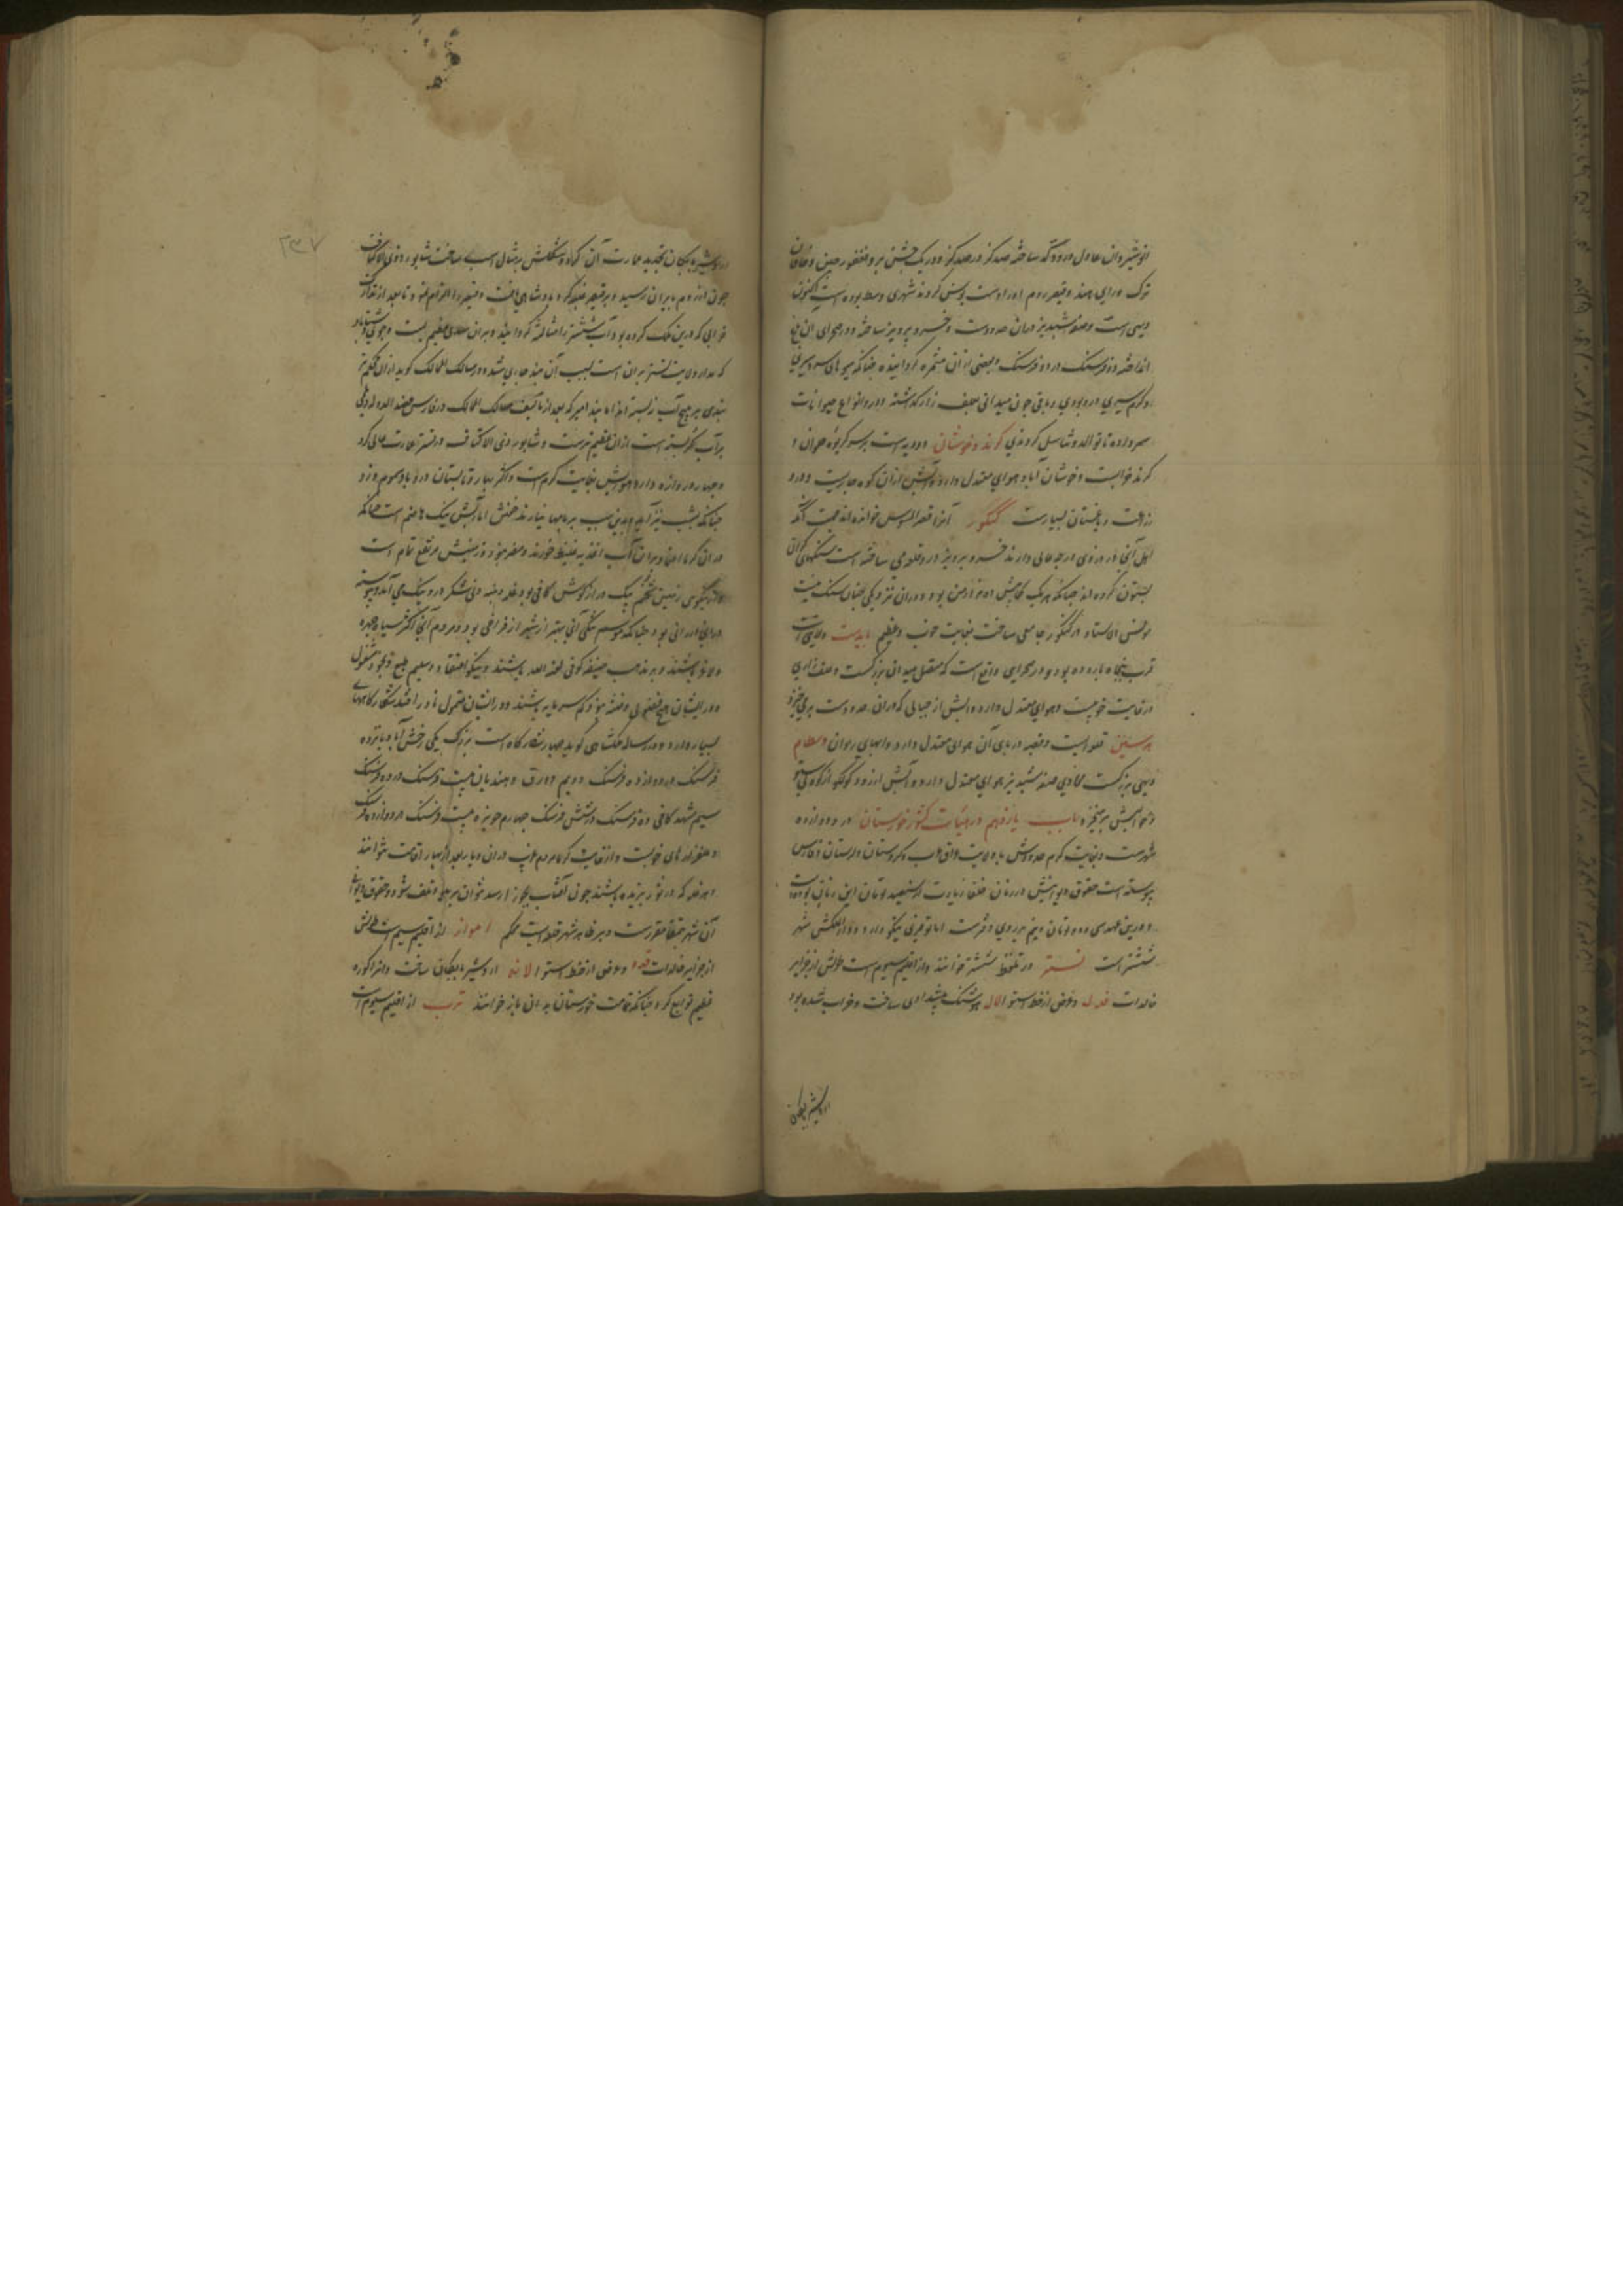 انوشیروان عادل درو دکه ساخته صد کز در صد کز و در یک جشن برو فغفور چین و خاقان
ترک و رای هند و قیصر روم اورا دست بوس کردند شهری وسط بوده است اکنون
دیهی است و صفه شبدیز دران حدودست و خسرو پرویز ساخته و در صحرای ان باغ
انداخته دو فرسنک در دو فرسنک و بعضی از ان مثمره کردانیده چنانکه میوهای سردسیری
و کرم سیری درو بودی و باقی چون میدانی علف زار کذاشته و درو انواع حیوانات
سر داده تا توالد و تناسل کردندی کرند و خوشان دو دیه است بر سر کریوه حلوان و
کرند خرابست و خوشان آباد هوای معتدل دارد و آبش از ان کوه جاریست و درو
زراعت و باغستان بسیارست کنکور آنرا قصر اللصوس خوانده اند جهت آنکه
اهل آنجا در دزدی درجه عالی دارند خسرو پرویز درو قلعه می ساخته است سنکهای کران
بستون کرده اند چنانکه هر یک کمابیش ده هزار من بود و دران نزدیکی چنان سنک نیست
مونس الاستاد در کنکور جامعی ساخت بغایت خوب و عظیم مایدشت ولایتی است
قرب پنجاه پاره ده بود و در صحرایی واقع است که متصل میدانی بزرکست و علف زاری
در غایت خوبیست و هوای معتدل دارد و آبش از جبالی که دران حدودست بر می خیزد
هرسین قلعه است و قصبه در پای آن هوای معتدل دارد و ابهای روان وسطام
دیهی بزرکست محاذی صفه شبدیز هوای معتدل دارد و آبش از رود کولکو از کوه بیستون
و حوالیش بر میخیزد باب یازدهم در هیات کشور خوزستان در و دوازده
شهرست و بغایت کرم حدودش با ولایت عراق عرب و کردستان و لرستان و فارس
پیوسته است حقوق دیوانیش در زمان خلفا زیادت از سیصد تومان این زمانی بوده است
و درین عهد سی و دو تومان و نیم بر روی دفترست اما توفیری نیکو دارد و دار الملکش شهر
تستر است تستر در تلفظ ششتر خوانند و از اقلیم سیوم است طولش از جزایر
خالدات فدل و عرض از خط استوا لال هوشنک پیشدادی ساخت و خراب شده بود
اردشیر بابکان
۲۳۷
اردشیر بابکان تجدید عمارت آن کرد و شکلش بر مثال اسب ساخت شابور ذوی الاکتاف
چون از روم بایران رسید و بر قیصر غلبه کرد و پادشاهی یافت و قیصر را الزام نمود تا بعد از تدارک
خرابی که درین ملک کرده بود آب ششتر را مثالثه کردانید و بران سدی عظیم بست و جوی دشتاباد
که مدار ولایت تستر بران است بسبب آن بند جاری شد و در مسالک الممالک کوید از ان محکم تر
بندی بر هیچ آب نبسته اند اما بند امیر که بعد از تالیف مسالک الممالک در فارس عضد الدوله دیلمی
بر آب کر بسته است از ان عظیم ترست و شابور ذی الاکتاف در تستر عمارت عالی کرد
و چهار دروازه دارد هوایش بغایت کرم است و اکثر بهار و تابستان درو باد سموم وزد
چنانکه بشب نیز آید و بدین سبب بر بامها نیارند خفتن اما آبش نیک هاضم است چنانکه
دران کرما اعتماد بر ان آب اغذیه غلیظ خورند و مضر نبود و زمینش مرتفع تمام است
و از نیکوی زمین تخم یک دراز کوش کافی بود غله و پنبه و نی شکر درو نیک می آید و پیوسته
درانجا ارزانی بود چنانکه موسم تنکی آنجا بهتر از شیراز فراخی بود و مردم آنجا اکثر سیاه چهره
و لاغر باشند و بر مذهب حنیفه کوفی رحمه الله باشند و نیکو اعتقاد و سلیم طبع و بخود مشغول
و در ایشان هیچ فضولی و فتنه نبود و کم سرمایه باشند و در ایشان متمول نادر افتد شکارکاههای
بسیار دارد و در رساله ملکشاهی کوید چهار شکارکاه است بزرک یکی رخش آباد پانزده
فرسنک در دوازده فرسنک دویم دورق و هندیان بیست فرسنک در ده فرسنک
سیم مشهد کافی ده فرسنک در شش فرسنک چهارم حویزه بیست فرسنک در دوازده فرسنک
و علفزارهای خوبست و از غایت کرما مردم غریب دران دیار بعد از بهار اقامت نتوانند
و هر غله که در ثور بریده باشند چون آفتاب بجوزا رسد نتوان برید و تلف شود و حقوق دیوانی
آن شهر بتمغا مقررست و بر ظاهر شهر قلعه ایست محکم اهواز از اقلیم سیم است طولش
از جزایر خالدات فه و عرض از خط استوا لا اردشیر بابکان ساخت و انرا کوره
عظیم توابع کرد چنانکه تمامت خوزستان بدان باز خوانند ترب از اقلیم سیوم است